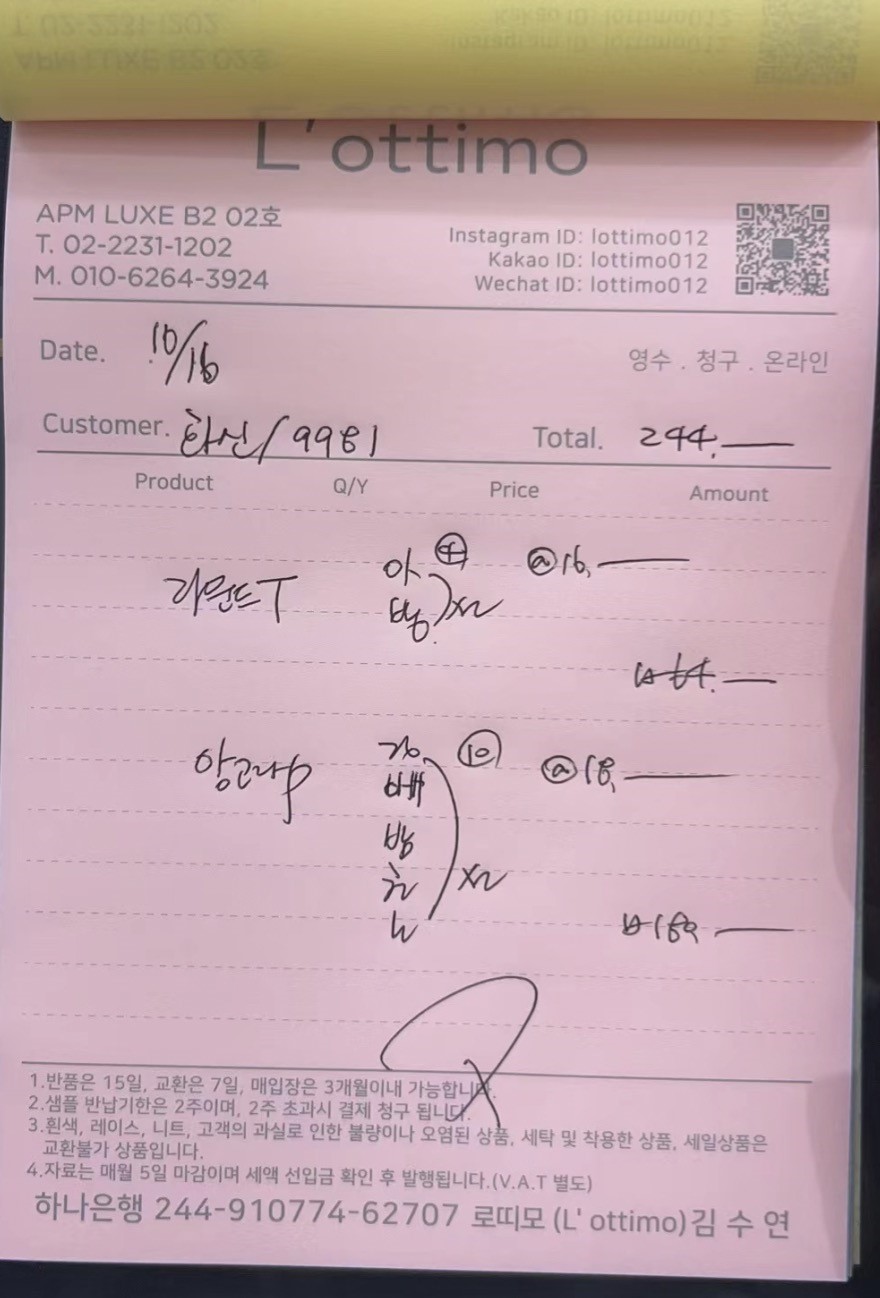 L'ottimo
APM LUXE B2 02호
T. 02-2231-1202
M. 010-6264-3924
Instagram ID: lottimo012
Kakao ID: lottimo012
Wechat ID: lottimo012
Date. 10/16
영수 . 청구 . 온라인
Customer. 화신/9981
Total. 244.
Product Q/Y Price Amount
아 ④ @16.
라운드T
64.
앙고라 ⑩ @18.
180
1.반품은 15일, 교환은 7일, 매입장은 3개월이내 가능합니다.
2.샘플 반납기한은 2주이며, 2주 초과시 결제 청구 됩니다.
3.흰색, 레이스, 니트, 고객의 과실로 인한 불량이나 오염된 상품, 세탁 및 착용한 상품, 세일상품은
교환불가 상품입니다.
4.자료는 매월 5일 마감이며 세액 선입금 확인 후 발행됩니다.(V.A.T 별도)
하나은행 244-910774-62707 로띠모 (L' ottimo) 김 수 연